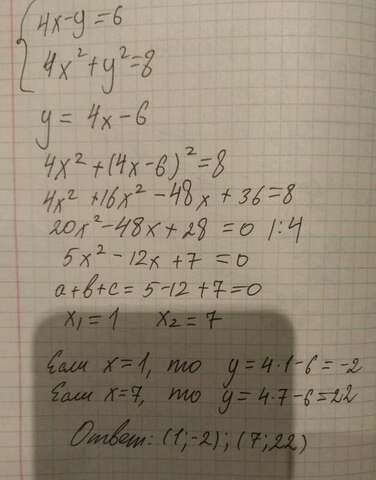 4x-y=6
4x²+y²=8
y = 4x-6
4x²+(4x-6)²=8
4x²+16x²-48x+36=8
20x²-48x+28=0 |:4
5x²-12x+7=0
a+b+c=5-12+7=0
x₁=1 x₂=7
Если x=1, то y=4·1-6=-2
Если x=7, то y=4·7-6=22
Ответ: (1;-2); (7;22)